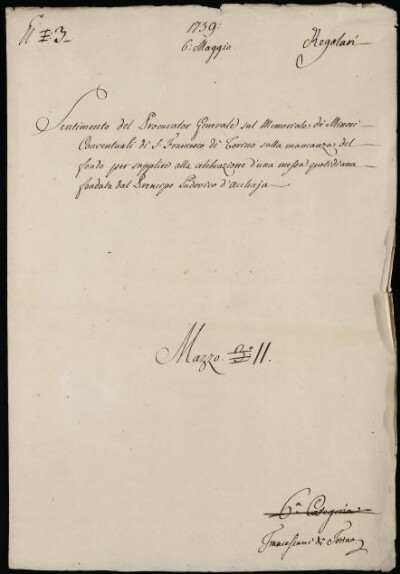 1739:
6: Maggio
Regolari
Sentimento del Procurator Generale sul Memoriale di Minori
Conventuali di S. Francesco di Torino sulla mancanza del
fondo per supplire alla celebrazione d'una messa quotidiana
fondata dal Prencipe Ludovico d'Acchaja
Mazzo II.
6.a Categoria
Francescani di Torino